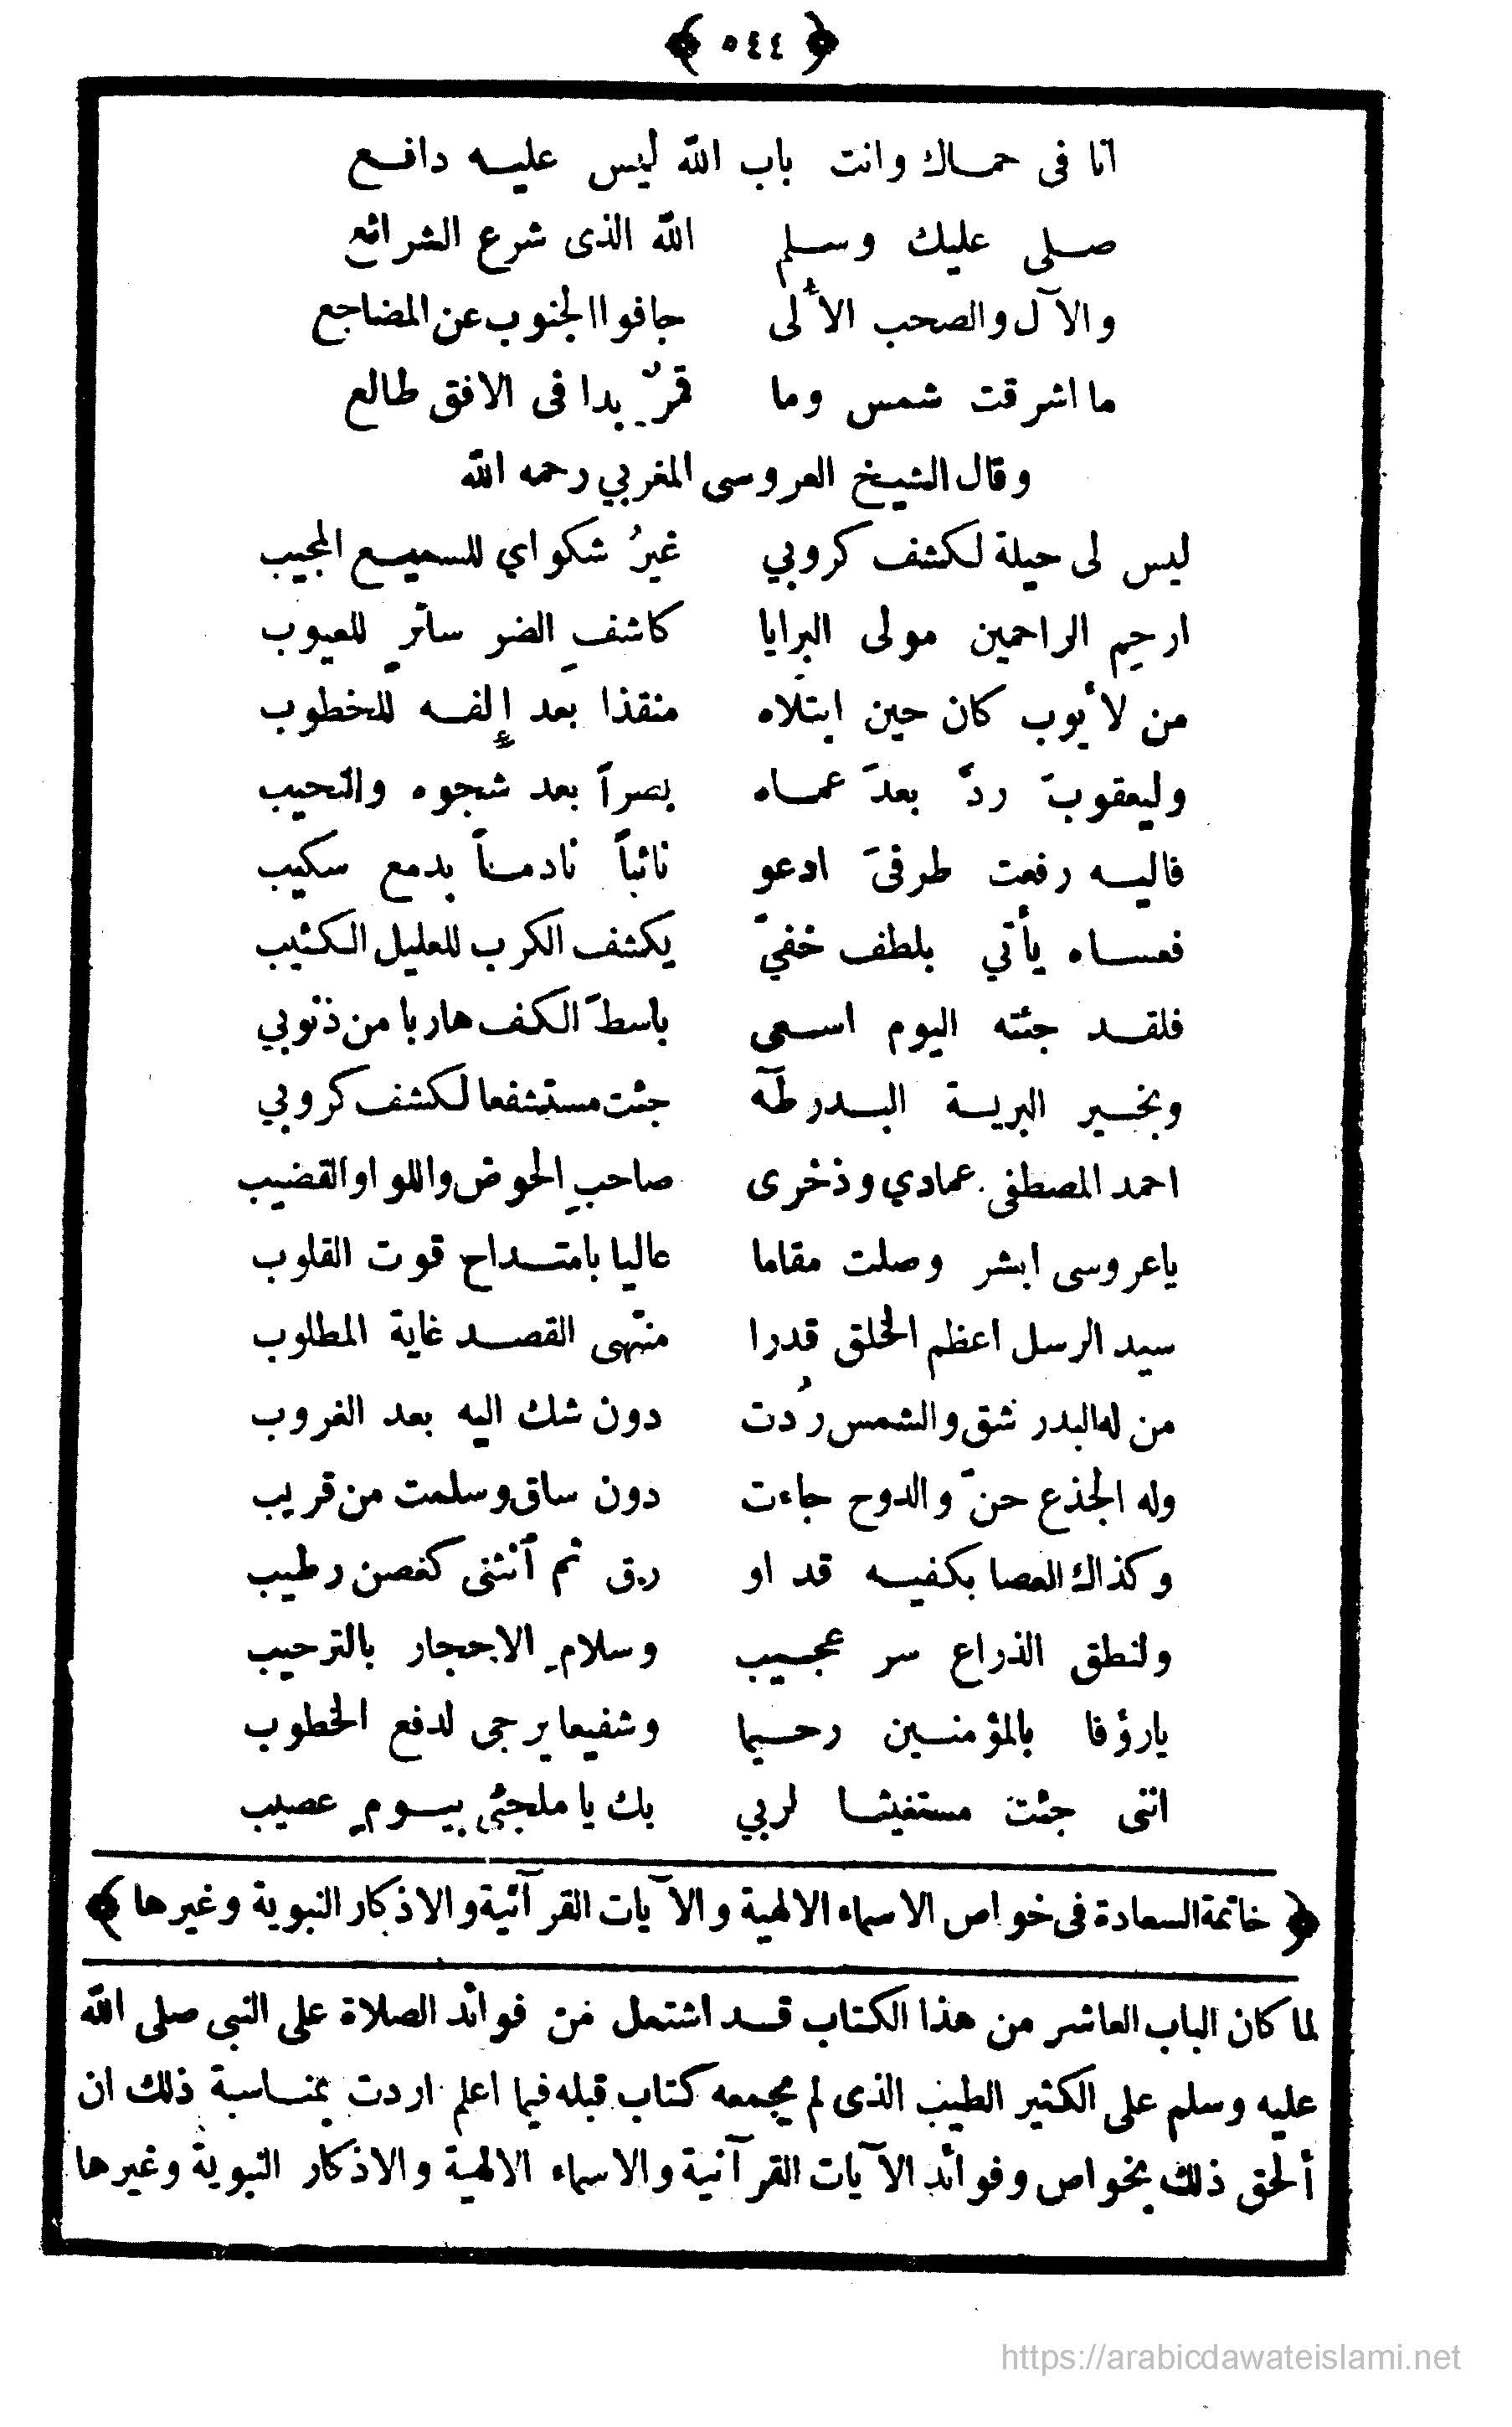 ﴿ ٥٤٤ ﴾
انا فى حماك وانت باب الله ليس عليه دافع
صلى عليك وسلم الله الذى شرع الشرائع
والآل والصحب الأُلى جافوا الجنوب عن المضاجع
ما اشرقت شمس وما قمرٌ بدا فى الافق طالع
وقال الشيخ العروسى المغربي رحمه الله
ليس لى حيلة لكشف كروبي غيرُ شكواي للسميع المجيب
ارحمِ الراحمين مولى البرايا كاشفِ الضر ساترٍ للعيوب
من لأيوب كان حين ابتلاه منقذا بعد إلفه للخطوب
وليعقوبَ ردَّ بعدَ عماه بصراً بعد شجوه والنحيب
فاليه رفعت طرفىَ ادعو تائباً نادماً بدمع سكيب
فعساه يأتي بلطف خفيّ يكشف الكرب للعليل الكئيب
فلقد جئته اليوم اسعى باسطَ الكف هاربا من ذنوبي
وبخير البرية البدر طٓه جئت مستشفعا لكشف كروبي
احمد المصطفى عمادي وذخرى صاحبِ الحوض واللواوالقضيب
ياعروسى ابشر وصلت مقاما عاليا بامتداح قوت القلوب
سيد الرسل اعظم الخلق قدرا منتهى القصد غاية المطلوب
من له البدر شق والشمس رُدت دون شك اليه بعد الغروب
وله الجذع حنّ والدوح جاءت دون ساق وسلمت من قريب
وكذاك العصا بكفيه قد او رق ثم آنثنى كغصن رطيب
ولنطق الذراع سر عجيب وسلامِ الاحجار بالترحيب
يارؤفا بالمؤمنين رحيما وشفيعا يرجى لدفع الخطوب
اننى جئت مستغيثا لربي بك يا ملجئى بيومٍ عصيب
﴿ خاتمة السعادة فى خواص الاسماء الالهية والآيات القرآنية والاذكار النبوية وغيرها ﴾
لما كان الباب العاشر من هذا الكتاب قد اشتمل من فوائد الصلاة على النبى صلى الله
عليه وسلم على الكثير الطيب الذى لم يجمعه كتاب قبله فيما اعلم اردت بمناسبة ذلك ان
ألحق ذلك بخواص وفوائد الآيات القرآنية والاسماء الالهية والاذكار النبوية وغيرها
https://arabicdawateislami.net